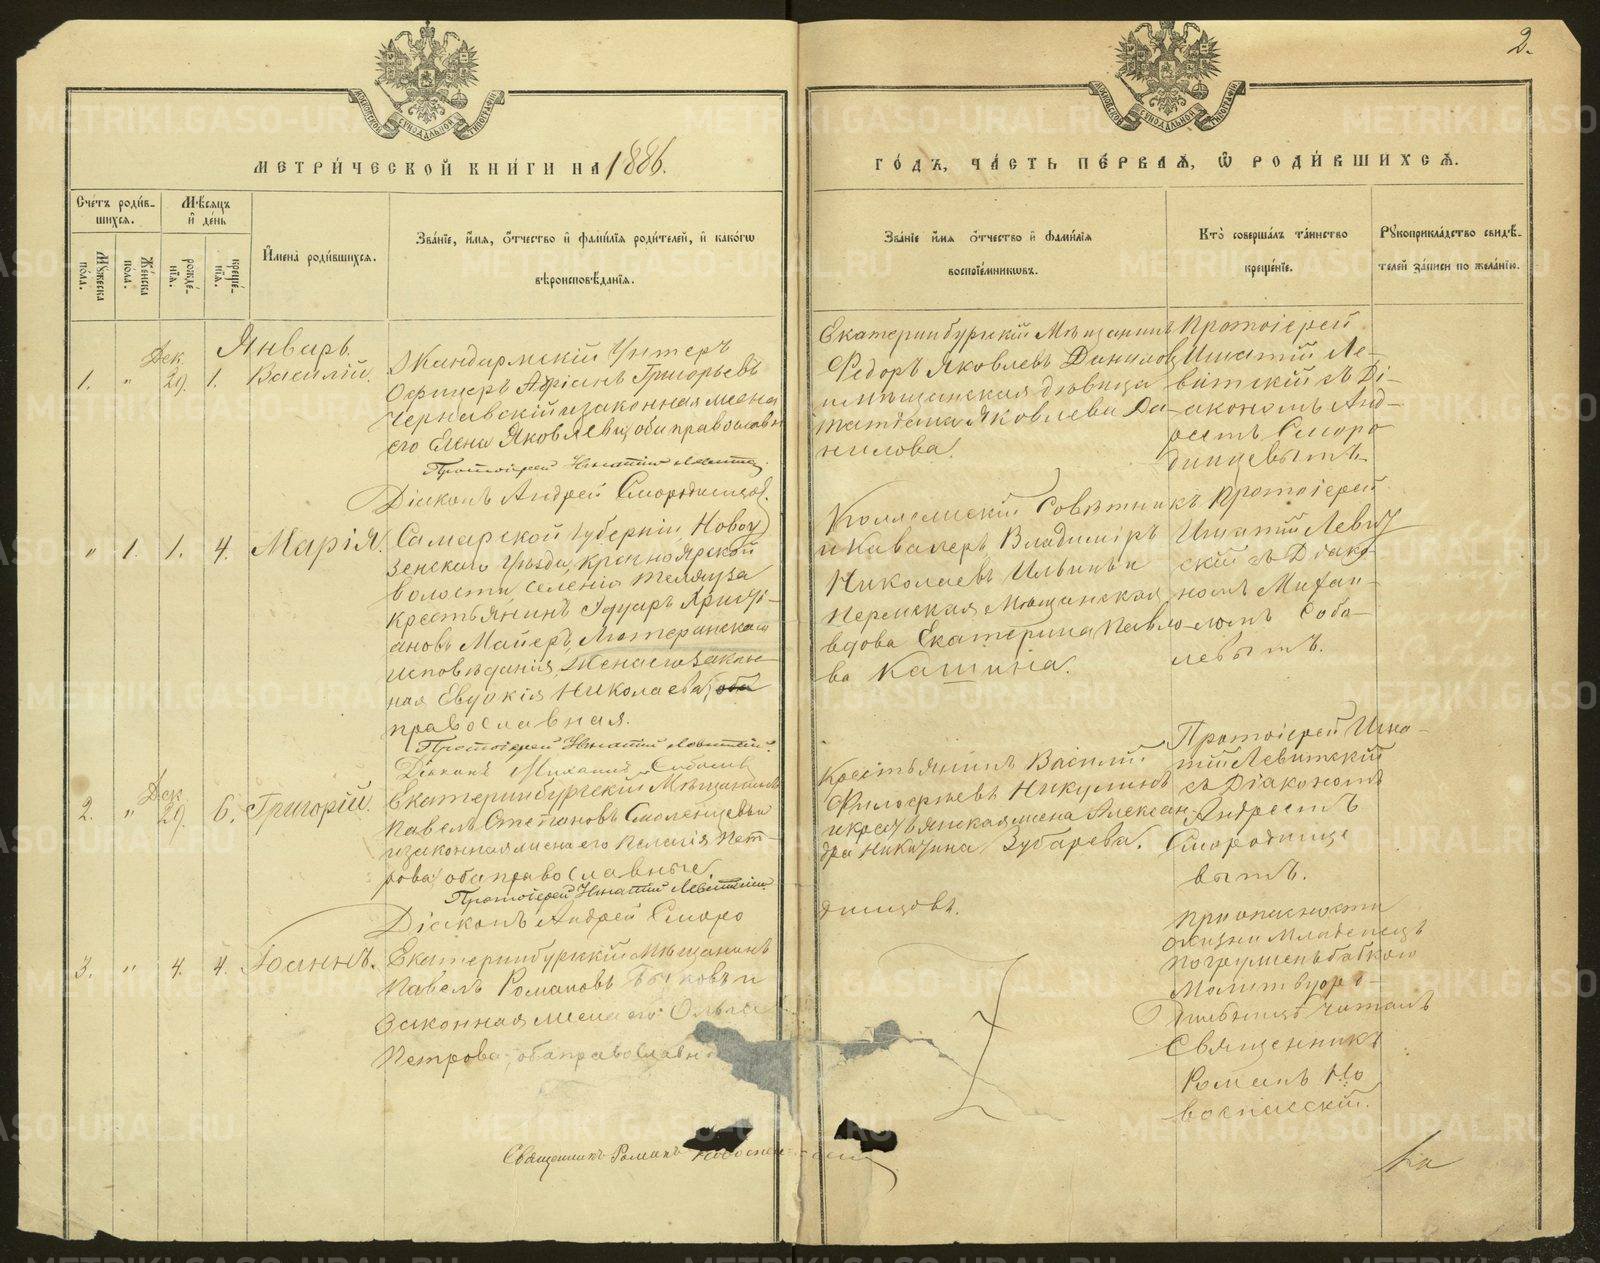 2.
МЕТРИ́ЧЕСКОЙ КНИ́ГИ НА 1886.
ГО́ДЪ, ЧА́СТЬ ПЕ́РВАѦ, Ѡ РОДИ́ВШИХСѦ.
Счетъ роди́в-
шихся.
Мѣсяцъ
и день
Мꙋжеска
пола.
Женска
пола.
рожде́-
нїя.
креще́-
нїя.
Имена роди́вшихся.
Зва́нїе, и́мя, о́тчество и фами́лїя роди́телей, и како́гѡ
вѣроисповѣданїя.
Зва́нїе и́мя о́тчество и фами́лїя
воспрїе́мникѡвъ.
Кто̀ соверша́лъ та́инство
креще́нїе.
Рꙋкоприкла́дство свидѣ́-
телей за́писи по жела́нїю.
Январь.
1. " Дек. 29. 1. Василій.
Жандармскій Унтеръ
Офицеръ Адріанъ Григорьевъ
Чернявскій и законная жена
его Елена Яковлева, оба православн
Протоіерей Игнатій Левитск
Діаконъ Андрей Смородинцовъ.
Екатеринбургскій Мѣщанинъ
Федоръ Яковлевъ Даниловъ
и мѣщанская дѣвица
Татіана Яковлева Да-
нилова.
Протоіерей
Игнатій Ле-
витскій съ Ді-
акономъ Анд-
реемъ Сморо
динцевымъ
" 1. 1. 4. Марія.
Самарской губерніи, Новоу
зенскаго уѣзда, Красноярской
волости, селенія Теляуза
крестьянинъ Эдуаръ Христі-
ановъ Майеръ, Лютеранскаго
исповѣданія, Жена его закон-
ная Евдокія Николаева, оба
православная.
Протоіерей Игнатій Левитскій.
Діаконъ Михаилъ Соболевъ
Коллежскій Совѣтникъ
и Кавалеръ, Владиміръ
Николаевъ Ильинъ и
Пермская Мѣщанская
вдова Екатерина Павло-
ва Кашина.
Протоіерей
Игнатій Левит
скій съ Діако-
номъ Михаи-
ломъ Собо-
левымъ.
2. " Дек. 29. 6. Григорій.
Екатеринбургскій Мѣщанинъ
Павелъ Степановъ Смоленцевъ
и законная жена его Пелагія Пет-
рова, оба православные.
Протоіерей Игнатій Левитскій.
Діаконъ Андрей Сморо
динцовъ.
Крестьянинъ Василій
Филофѣевъ Никулинъ
и крестьянская жена Алексан-
дра Никитина Зубарева.
Протоіерей Игна-
тій Левитскій
съ Діакономъ
Андреемъ
Смородинце
вымъ.
3. " 4. 4. Іоаннъ.
Екатеринбургскій Мѣщанинъ
Павелъ Романовъ Быковъ и
законная жена его Ольга
Петрова, оба православн
Священникъ Романъ
При опасности
жизни младенецъ
погруженъ бабкою
Молитву ро-
дильницѣ читалъ
Священникъ
Романъ Но
воспасскій.